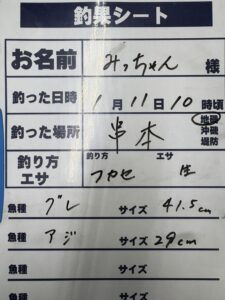 釣果シート
お名前 みっちゃん 様
釣った日時 1月11日10時頃
釣った場所 串本 地磯 沖磯 堤防
釣り方 エサ 釣り方 フカセ エサ 生
魚種 グレ サイズ 41.5cm
魚種 アジ サイズ 29cm
魚種 サイズ
魚種 サイズ